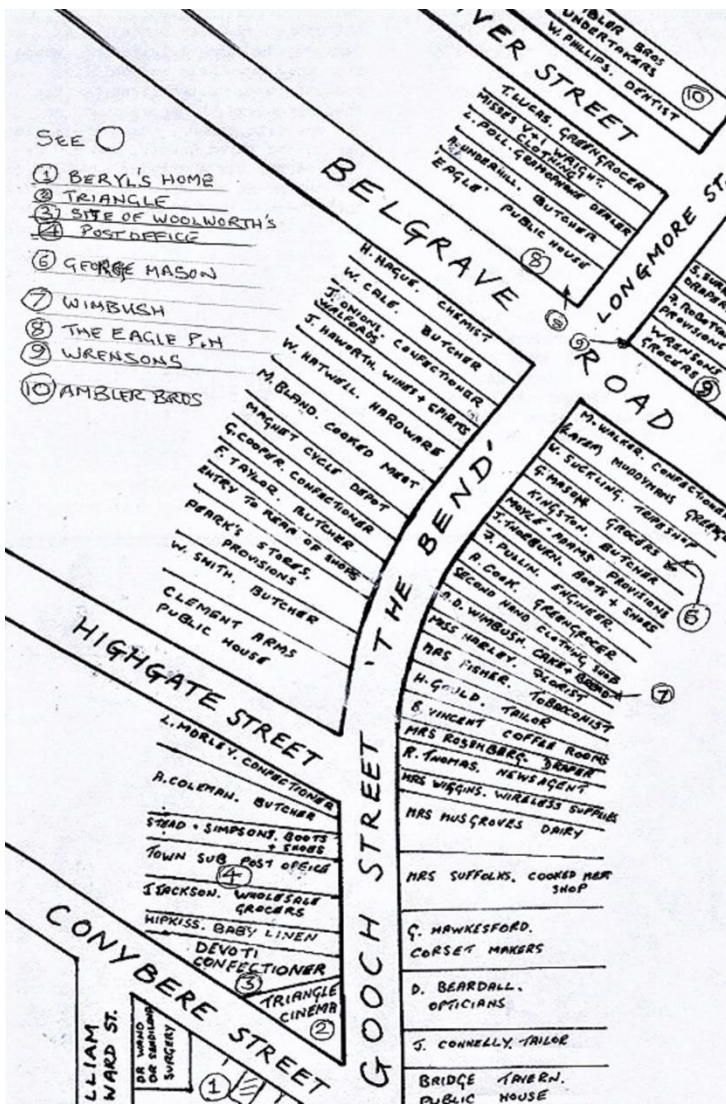 SEE
① BERYL'S HOME
② TRIANGLE
③ SITE OF WOOLWORTH'S
④ POST OFFICE
⑥ GEORGE MASON
⑦ WIMBUSH
⑧ THE EAGLE P.H
⑨ WRENSONS
⑩ AMBLER BROS
VER STREET
BLER BROS
UNDERTAKERS
W. PHILLIPS. DENTIST
⑩
T. LUGAS. GREENGROCER
MISSES V+I WRIGHT.
CLOTHING
L. POLL. GRAMOPHONE DEALER
UNDERHILL. BUTCHER
EAGLE' PUBLIC HOUSE
⑧
LONGMORE ST
BELGRAVE ROAD
⑧ ⑨
DRAPE
PROVISIONS
WRENSONS
GROCERS ⑨
H. HAGUE. CHEMIST
W. CALE. BUTCHER
J. ONIONS. CONFECTIONER
WALFORDS
J. HAWORTH. WINES + SPIRITS
W. HATWELL. HARDWARE
M. BLAND. COOKED MEAT
MAGNET CYCLE DEPOT
G. COOPER. CONFECTIONER
F. TAYLOR. BUTCHER
ENTRY TO REAR OF SHOPS
PEARK'S STORES.
PROVISIONS
W. SMITH. BUTCHER
CLEMENT ARMS
PUBLIC HOUSE
'THE BEND'
M. WALKER. CONFECTIONER
(LATER) MUDDYMANS
SUCKLING. TRIPESHOP
G. MASON GROCERS
KINGSTON. BUTCHER
MOYLE + ADAMS PROVISIONS
J. THORBURN. BOOTS + SHOES
J. PULLIN. ENGINEER.
A. COOK. GREENGROCER
SECOND HAND CLOTHING SHOP
D. WIMBUSH. CAKE + BREAD
MISS HARLEY. FLORIST
MRS FISHER. TOBACCONIST
H. GOULD. TAILOR
B. VINCENT COFFEE ROOMS
MRS ROSENBERG. DRAPER
R. THOMAS. NEWSAGENT
MRS WIGGINS. WIRELESS SUPPLIES
MRS MUSGROVES DAIRY
MRS SUFFOLKS. COOKED MEAT
SHOP
G. HAWKESFORD.
CORSET MAKERS
D. BEARDALL.
OPTICIANS
J. CONNELLY. TAILOR
BRIDGE TAVERN.
PUBLIC HOUSE
⑥
⑦
HIGHGATE STREET
L. MORLEY. CONFECTIONER
A. COLEMAN. BUTCHER
STEAD + SIMPSONS. BOOTS
+ SHOES
TOWN SUB POST OFFICE
④
J JACKSON. WHOLESALE
GROCERS
HIPKISS. BABY LINEN
DEVOTI
CONFECTIONER
③
TRIANGLE
CINEMA
②
GOOCH STREET
CONYBERE STREET
LLIAM
WARD ST.
DR WAND
SURGERY
①